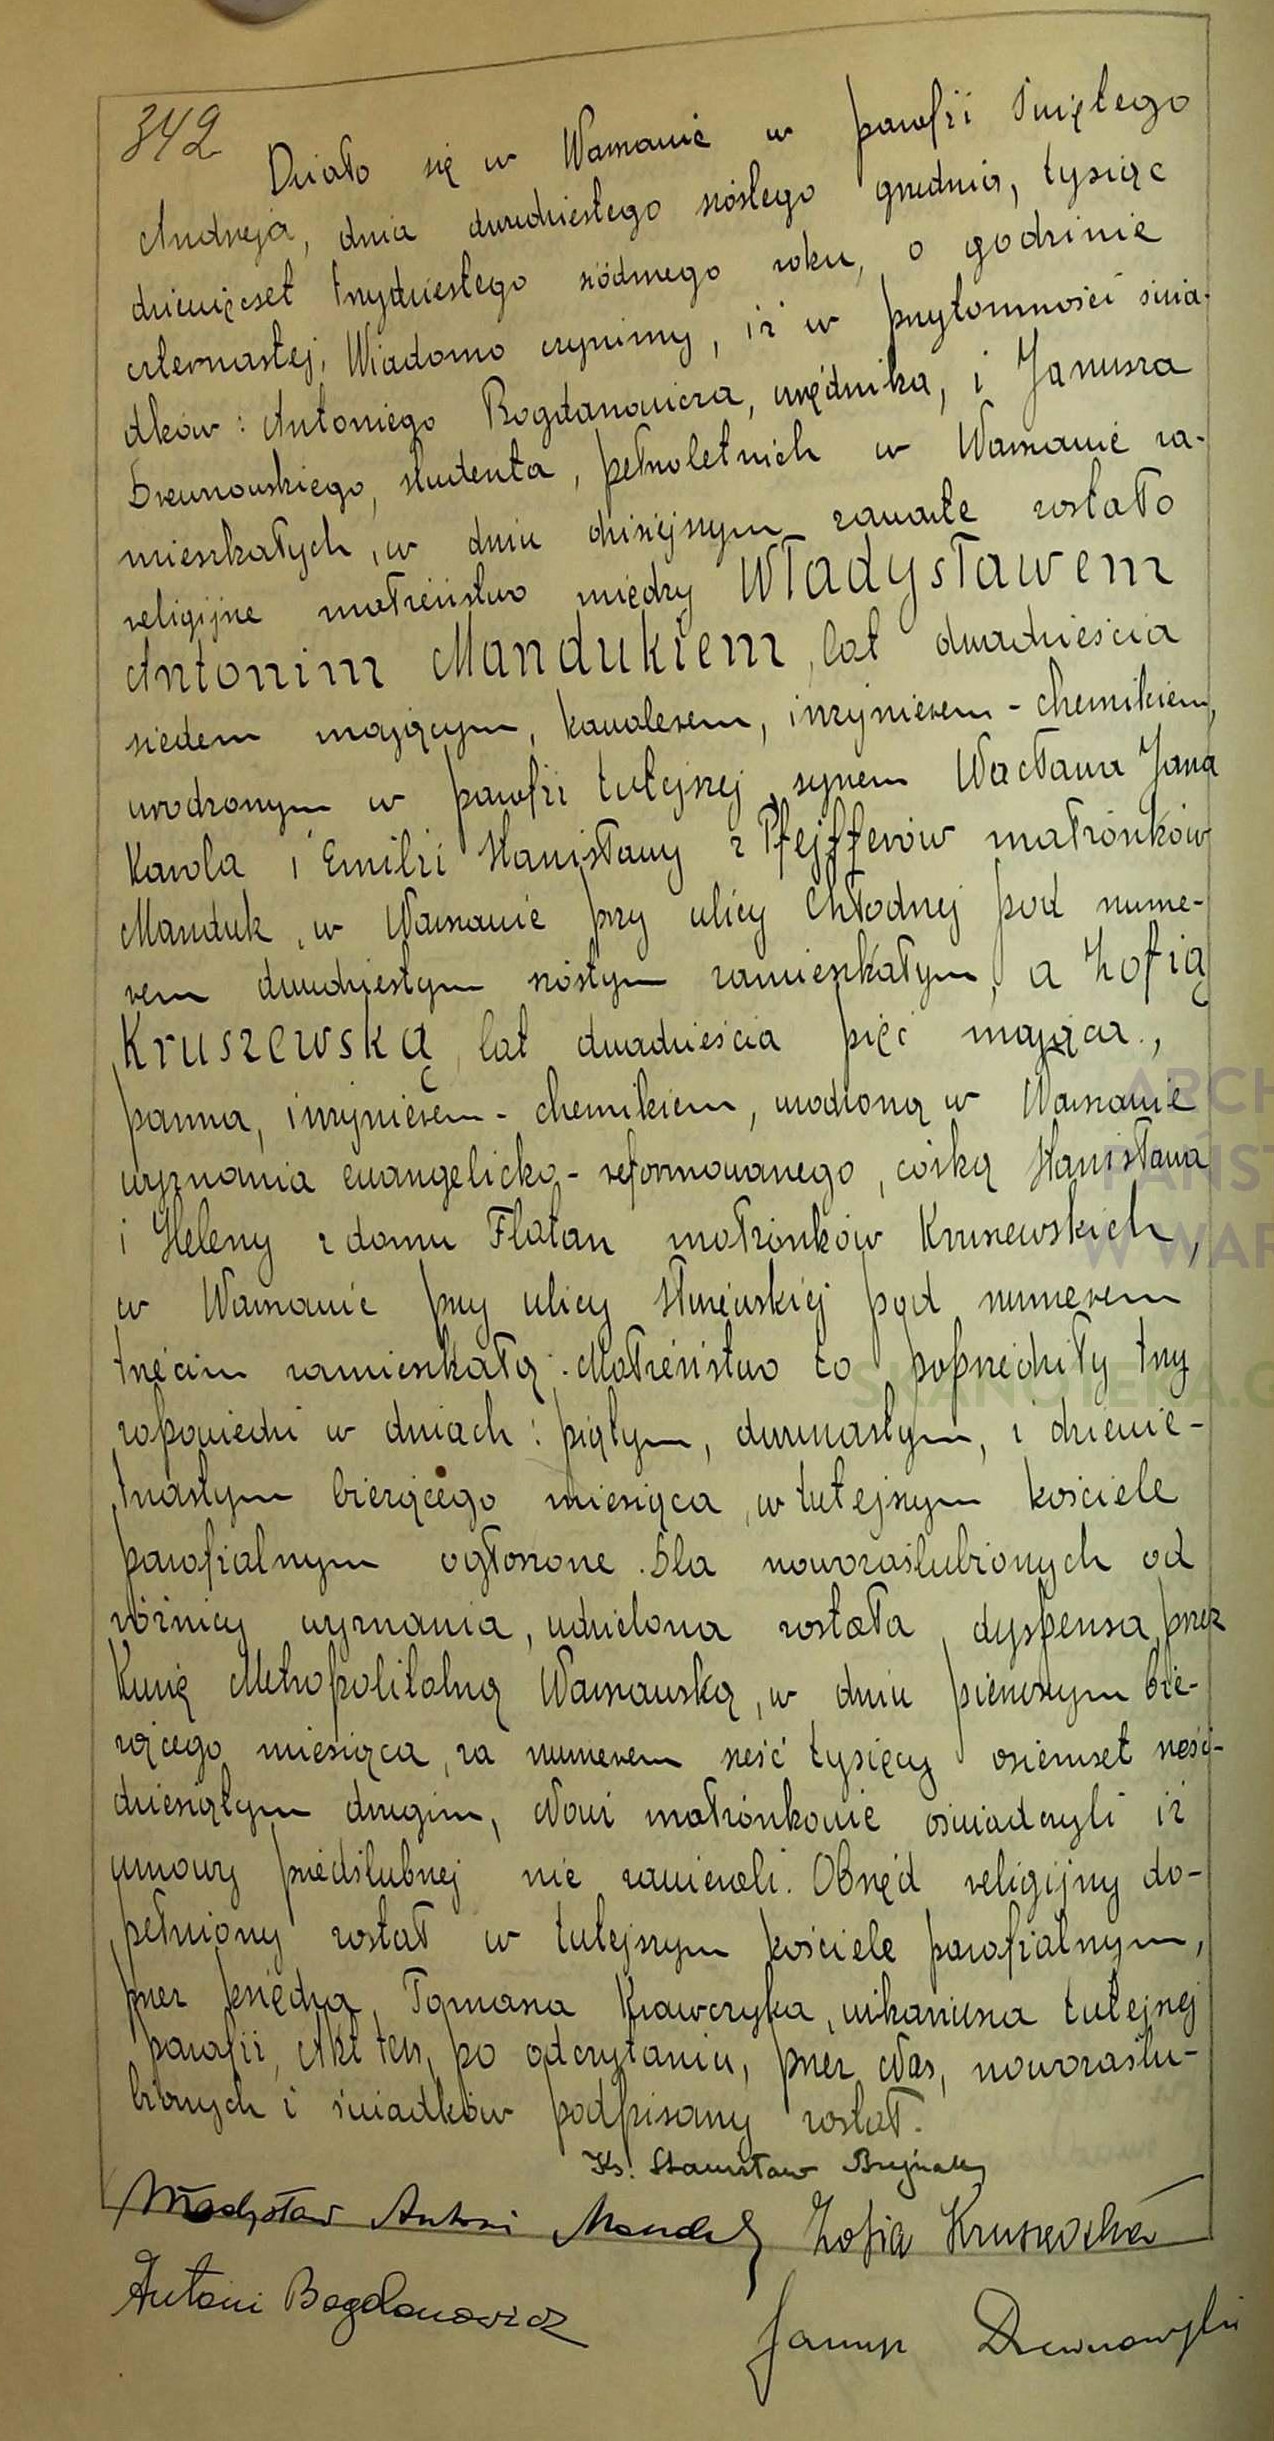 342
Działo się w Warszawie w parafii Świętego
Andrzeja, dnia dwudziestego szóstego grudnia, tysiąc
dziewięćset trzydziestego siódmego roku, o godzinie
czternastej. Wiadomo czynimy, iż w przytomności świa-
dków: Antoniego Bogdanowicza, urzędnika, i Janusza
Drewnowskiego, studenta, pełnoletnich w Warszawie za-
mieszkałych, w dniu dzisiejszym zawarte zostało
religijne małżeństwo między Władysławem
Antonim Mandukiem, lat dwadzieścia
siedem mającym, kawalerem, inżynierem-chemikiem,
urodzonym w parafii tutejszej, synem Wacława Jana
Karola i Emilii Stanisławy z Pfejfferów małżonków
Manduk, w Warszawie przy ulicy Chłodnej pod nume-
rem dwudziestym szóstym zamieszkałym, a Zofią
Kruszewską, lat dwadzieścia pięć mającą,
panną, inżynierem-chemikiem, urodzoną w Warszawie
wyznania ewangelicko-reformowanego, córką Stanisława
i Heleny z domu Flatau małżonków Kruszewskich,
w Warszawie przy ulicy Służewskiej pod numerem
trzecim zamieszkałą. Małżeństwo to poprzedziły trzy
zapowiedzi w dniach: piątym, dwunastym, i dziewię-
tnastym bieżącego miesiąca, w tutejszym kościele
parafialnym ogłoszone. Dla nowozaślubionych od
różnicy wyznania, udzielona została dyspensa przez
Kurię Metropolitalną Warszawską, w dniu pierwszym bie-
żącego miesiąca, za numerem sześć tysięcy osiemset sześć-
dziesiątym drugim, Nowi małżonkowie oświadczyli iż
umowy przedślubnej nie zawierali. Obrzęd religijny do-
pełniony został w tutejszym kościele parafialnym,
przez księdza Tomasza Krawczyka, wikariusza tutejszej
parafii, Akt ten, po odczytaniu, przez Nas, nowozaślu-
bionych i świadków podpisany został.
Ks. Stanisław
Władysław Antoni Manduk Zofia Kruszewska
Antoni Bogdanowicz
Janusz Drewnowski
ARCH
PAŃST
W WAR
SKANOTEKA.G